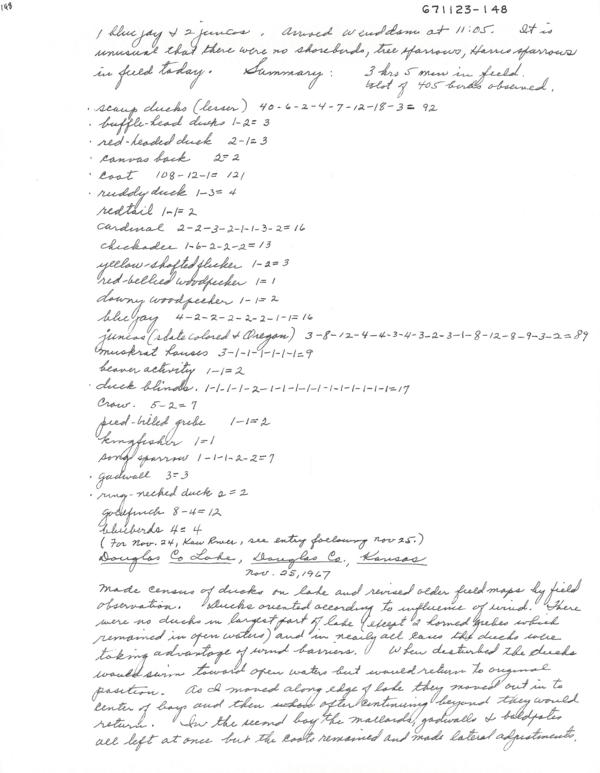 148
671123-148
1 blue jay & 2 juncos. Arrived Wenddam at 11:05. It is
unusual that there were no shorebirds, tree sparrows, Harris sparrows
in field today. Summary: 3 hrs 5 min in field.
total of 405 birds observed.
· scaup ducks (lesser) 40-6-2-4-7-12-18-3= 92
· buffle-head ducks 1-2= 3
· red-headed duck 2-1= 3
· canvas back 2= 2
· coot 108-12-1= 121
· ruddy duck 1-3= 4
redtail 1-1= 2
cardinal 2-2-3-2-1-1-3-2= 16
chickadee 1-6-2-2-2= 13
yellow-shafted flicker 1-2= 3
red-bellied woodpecker 1= 1
downy woodpecker 1-1= 2
blue jay 4-2-2-2-2-2-1-1= 16
juncos (slate colored & Oregon) 3-8-12-4-4-3-4-3-2-3-1-8-12-8-9-3-2= 89
muskrat houses 3-1-1-1-1-1-1= 9
beaver activity 1-1= 2
· duck blinds. 1-1-1-1-2-1-1-1-1-1-1-1-1-1-1-1= 17
Crow. 5-2= 7
pied-billed grebe 1-1= 2
kingfisher 1= 1
song sparrow 1-1-1-2-2= 7
· gadwall 3= 3
· ring-necked duck 2= 2
goldfinch 8-4= 12
bluebirds 4= 4
(For Nov. 24, Kaw River, see entry following Nov 25.)
Douglas Co Lake, Douglas Co., Kansas
Nov. 25, 1967
Made census of ducks on lake and revised older field maps by field
observation. Ducks oriented according to influence of wind. There
were no ducks in largest part of lake (except 2 horned grebes which
remained in open waters) and in nearly all cases the ducks were
taking advantage of wind barriers. When disturbed the ducks
would swim toward open waters but would return to original
position. As I moved along edge of lake they moved out in to
center of bay and then when after continuing beyond they would
return. In the second bay the mallards, gadwalls & baldpates
all left at once but the coots remained and made lateral adjustments.